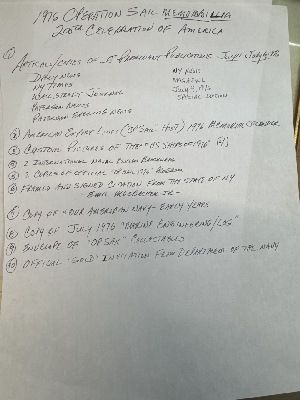 1976 OPERATION SAIL MEMORABILIA
200th CELEBRATION OF AMERICA
① ARTICLES/COPIES OF 5 PROMINENT PUBLICATIONS JULY 1976
DAILY NEWS NY NEWS
NY TIMES MAGAZINE
WALL STREET JOURNAL JULY 4, 1976
PATERSON NEWS SPECIAL EDITION
PATERSON EVENING NEWS
② AMERICAN EXPORT LINES (OPSAIL HOST) 1976 MEMORIAL
③ CUSTOM PICTURES OF THE SHIPS OF 1976
④ 2 INTERNATIONAL NAVAL REVIEW
⑤ 2 COPIES OF OFFICIAL OPSAIL 1976
⑥ FRAMED AND SIGNED CITATION FROM THE STATE OF NY
EMIL JR -
⑦ COPY OF "OUR AMERICAN NAVY - EARLY YEARS
⑧ COPY OF JULY 1976 "MARINE ENGINEERING/LOG"
⑨ ENVELOPE OF "OPSAIL" COLLECTABLES
⑩ OFFICIAL "GOLD" INVITATION FROM DEPARTMENT OF THE NAVY